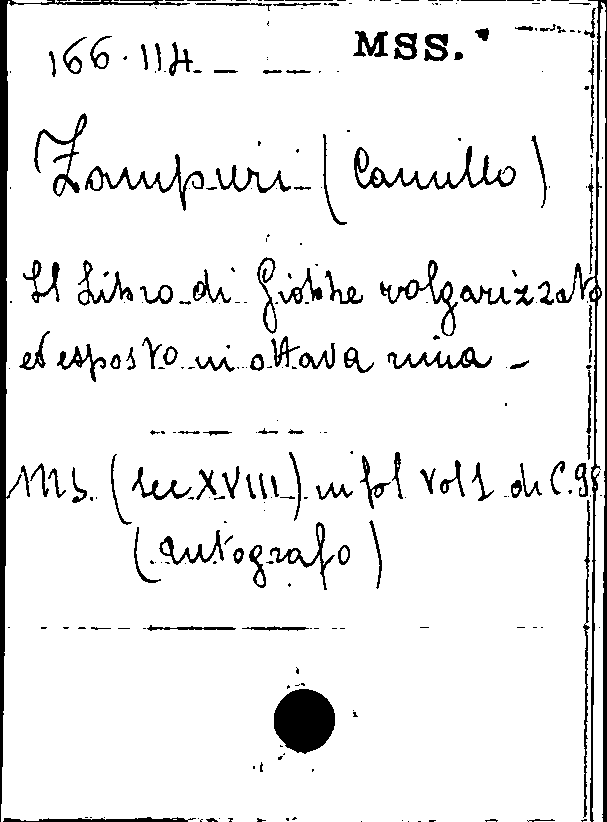 166.114 MSS.
Zampieri (Camillo)
Il Libro di Giobbe volgarizzato
ed esposto in ottava rima -
Ms. (sec XVIII) in fol vol 1 di C. 98
(autografo)